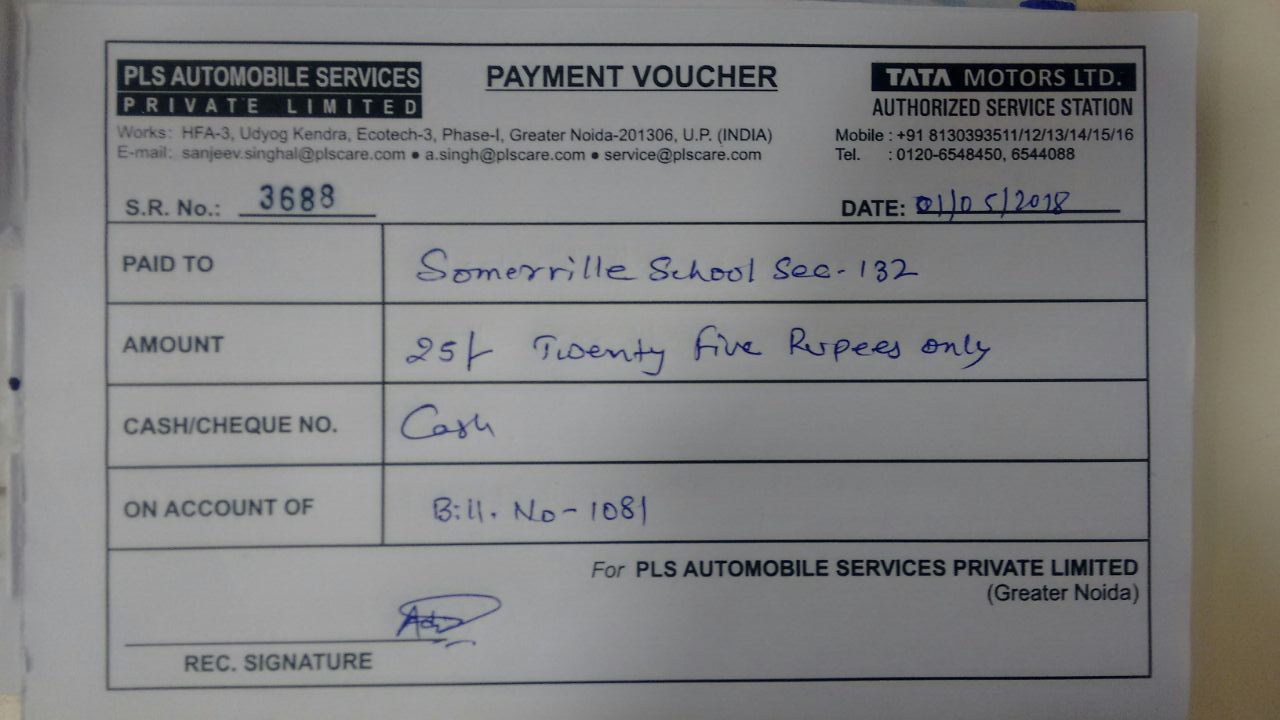 PLS AUTOMOBILE SERVICES
PRIVATE LIMITED
PAYMENT VOUCHER
TATA MOTORS LTD.
AUTHORIZED SERVICE STATION
Works: HFA-3, Udyog Kendra, Ecotech-3, Phase-I, Greater Noida-201306, U.P. (INDIA)
E-mail: sanjeev.singhal@plscare.com ● a.singh@plscare.com ● service@plscare.com
Mobile : +91 8130393511/12/13/14/15/16
Tel. : 0120-6548450, 6544088
S.R. No.: 3688
DATE: 01/05/2018
PAID TO Somerville School Sec-132
AMOUNT 25/- Twenty five Rupees only
CASH/CHEQUE NO. Cash
ON ACCOUNT OF Bill. No-1081
For PLS AUTOMOBILE SERVICES PRIVATE LIMITED
(Greater Noida)
REC. SIGNATURE